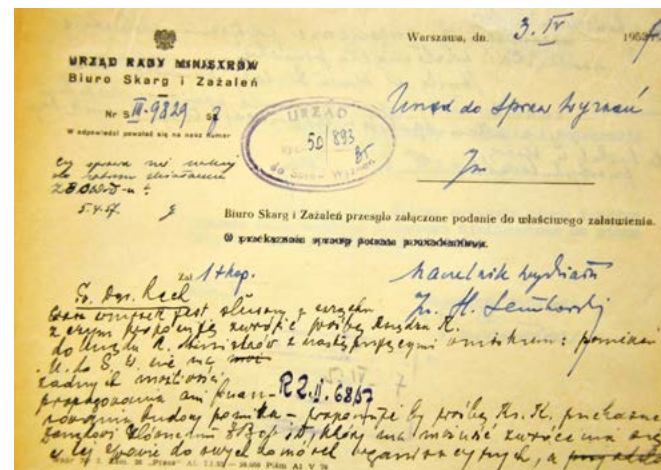 Warszawa, dn. 3. IV 195
URZĄD RADY MINISTRÓW
Biuro Skarg i Zażaleń
Nr S III-9829
W odpowiedzi powołać się na nasz numer
URZĄD
50/893
do Spraw Wyznań
Urząd do Spraw Wyznań
czy sprawa nie należy
do
ZBOWiD-u?
5.4.57.
Biuro Skarg i Zażaleń przesyła załączone podanie do właściwego załatwienia.
O przekazaniu sprawy petenta powiadomiono.
Zał 1+kop.
Naczelnik Wydziału
Ob. Dyr. Rech
wniosek jest słuszny
z czym proponuję zwrócić prośbę Księdza K.
do Urzędu R. Ministrów z następującymi : ponieważ
U. do S. W. nie ma
żadnych możliwości
propagowania ani finan-
R2.II.68/57
sowania budowy pomnika – proponuję by prośbę Ks. K. przekazać
Zarządowi Głównemu, który ma możność zwrócenia się
w tej sprawie do swych komórek organizacyjnych, a